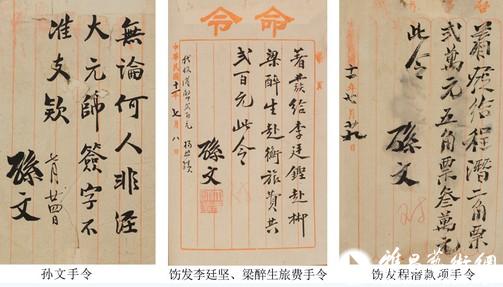 無論何人非經
大元帥簽字不
准支欵
七月廿四日
孫文
命令
着發給李廷鏗赴郴
梁醉生赴衡旅費共
貳百元此令
孫文
中華民國十二年七月八日
着發給程潛二角票
貳萬元五角票叁萬元
此令
孫文
孙文手令
饬发李廷坚、梁醉生旅费手令
饬发程潜款项手令
雅昌藝術網